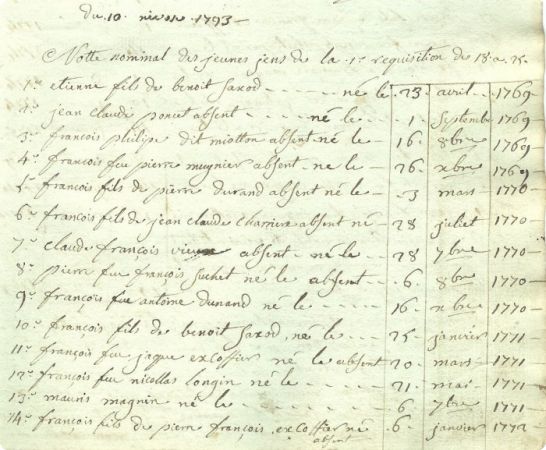 du 10 nivose 1793 -
Notte nominal des jeunes jens de la 1re requisition de 18 a 25
1° etienne fils de benoit saxod né le 23 avril 1769
2° jean claude poncet absent né le 1 septembre 1769
3° françois philipe dit miotton absent né le 16 8bre 1769
4° françois feu pierre mugnier absent né le 26 xbre 1769
5° françois fils de pierre durand absent né le 3 mars 1770
6° françois fils de jean claude charriere absent né 28 juliet 1770
7° claude françois absent né le 28 7bre 1770
8° pierre feu françois suchet né le absent 6 8bre 1770
9° françois feu antoine dunand né le 16 xbre 1770
10° françois fils de benoit saxod né le 25 janvier 1771
11° françois feu jaque excoffier né le absent 20 mars 1771
12° françois feu nicollas longin né le 21 mai 1771
13° mauris magnin né le 6 7bre 1771
14° françois fils de pierre françois excoffier né 6 janvier 1772
absent